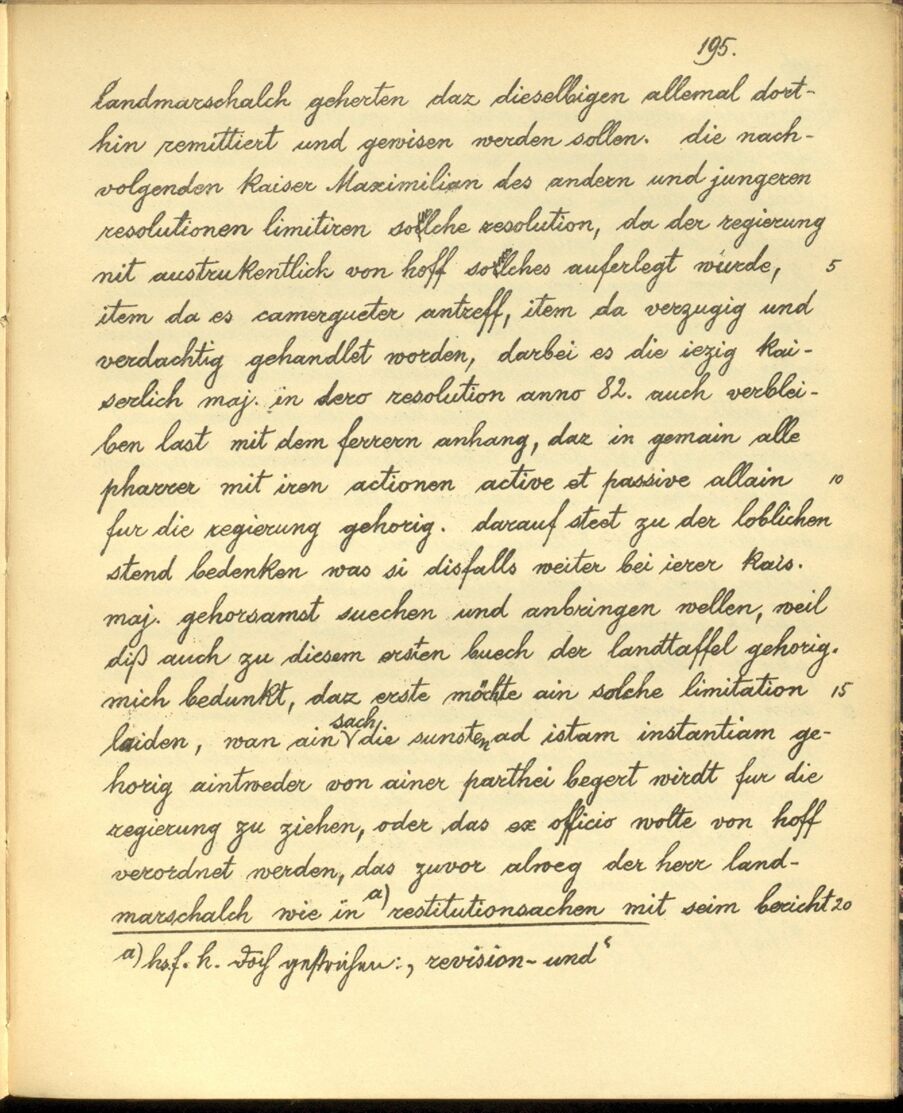 195.
landmarschalch geherten daz dieselbigen allemal dort-
hin remittiert und gewisen werden sollen. die nach-
volgenden kaiser Maximilian des andern und jungeren
resolutionen limitiren solche resolution, da der regierung
nit austrukentlich von hoff solches auferlegt wurde, 5
item da es camergueter antreff, item da verzugig und
verdachtig gehandlet worden, darbei es die iezig kai-
serlich maj. in dero resolution anno 82. auch verblei-
ben last mit dem ferrern anhang, daz in gemain alle
pharrer mit iren actionen active et passive allain 10
fur die regierung gehorig. darauf steet zu der loblichen
stend bedenken was si disfalls weiter bei ierer kais.
maj. gehorsamst suechen und anbringen wellen, weil
diß auch zu diesem ersten buech der landtaffel gehorig.
mich bedunkt, daz erste möchte ain solche limitation 15
laiden, wan ain sach die sunsten ad istam instantiam ge-
horig aintweder von ainer parthei begert wirdt fur die
regierung zu ziehen, oder das ex officio wolte von hoff
verordnet werden, das zuvor alweg der herr land-
marschalch wie in a) restitutionsachen mit seim bericht 20
a) hs.f. h. doch gestrichen: „revision- und“